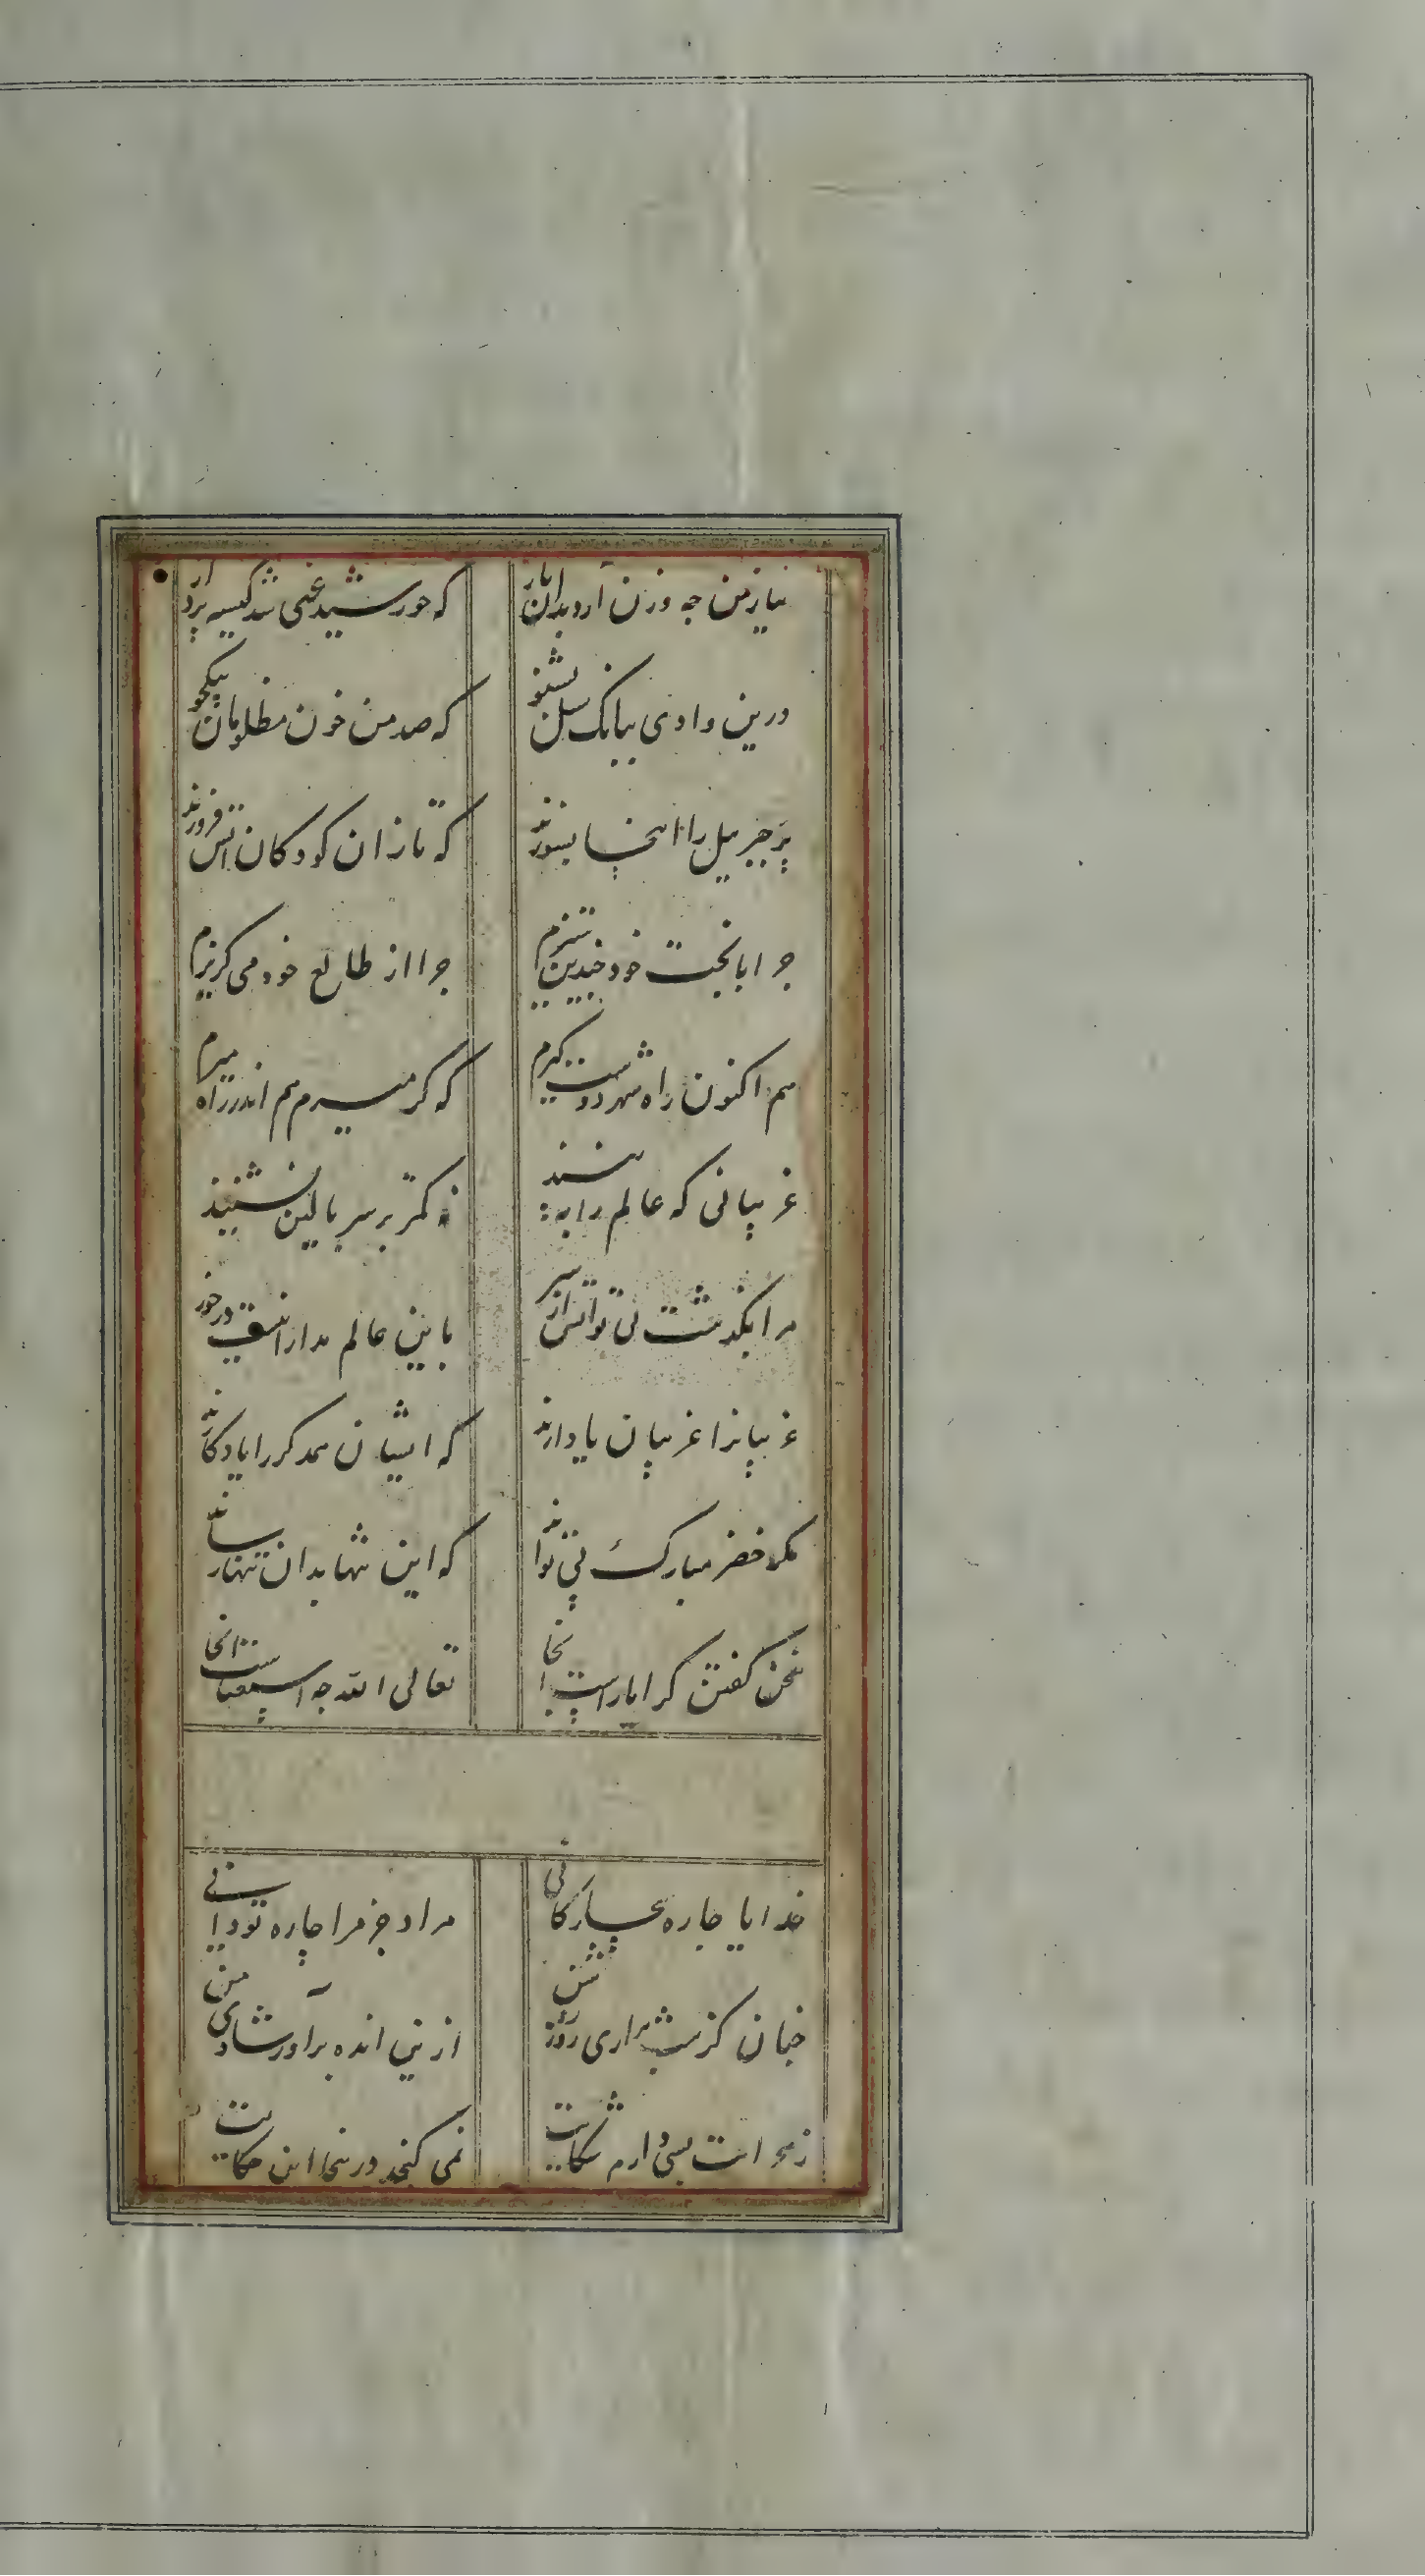 نیاز من چه وزن آرد بدان بار
که خورشید غنی شد کیسه پرداز
درین وادی ببانک سیل بشنو
که صد من خون مظلومان بیکجو
پر جبریل را اینجا بسوزند
که تا زان کودکان آتش فروزند
چرا با بخت خود چندین ستیزم
چرا از طالع خود می گریزم
هم اکنون راه شهر دوست گیرم
که گر میرم هم اندر راه میرم
غریبانی که عالم را به
نه کمتر بر سر بالین نشینند
مرا بگذشت بی تو آتش از سر
باین عالم مدارا نیست در خور
غریبانرا غریبان یاد آرند
که ایشان همدگر را یادگارند
مگر خضر مبارک پی تواند
که این تنها بدان تنها رساند
سخن گفتن کرا یاراست اینجا
تعالی الله چه استغناست اینجا
خدایا چاره بیچارگانی
مراد جز مرا چاره تو دانی
چنان کز شب براری روز روشن
ازین انده برآور شادی من
ز هجرانت بسی دارم شکایت
نمی گنجد درینجا این حکایت